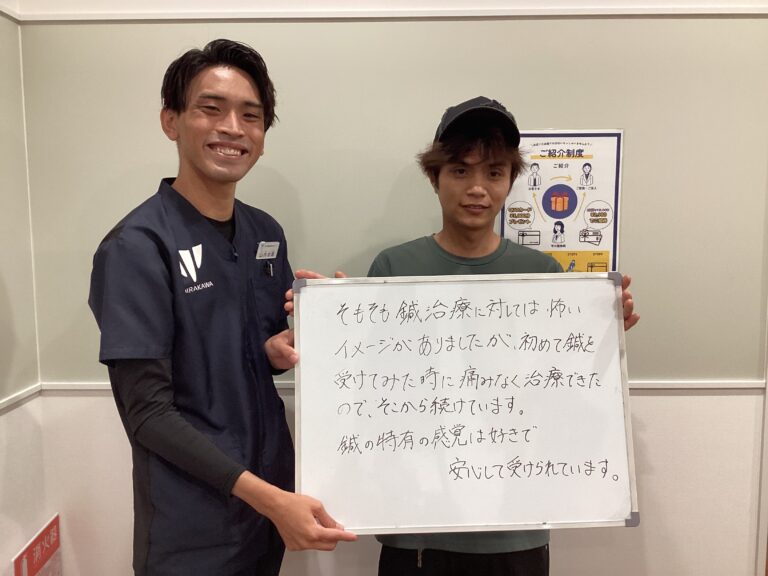 ご紹介制度
ご紹介
ARAKAWA
そもそも鍼治療に対しては怖い
イメージがありましたが、初めて鍼を
受けてみた時に痛みなく治療できた
ので、そこから続けています。
鍼の特有の感覚は好きで
安心して受けられています。
消火器